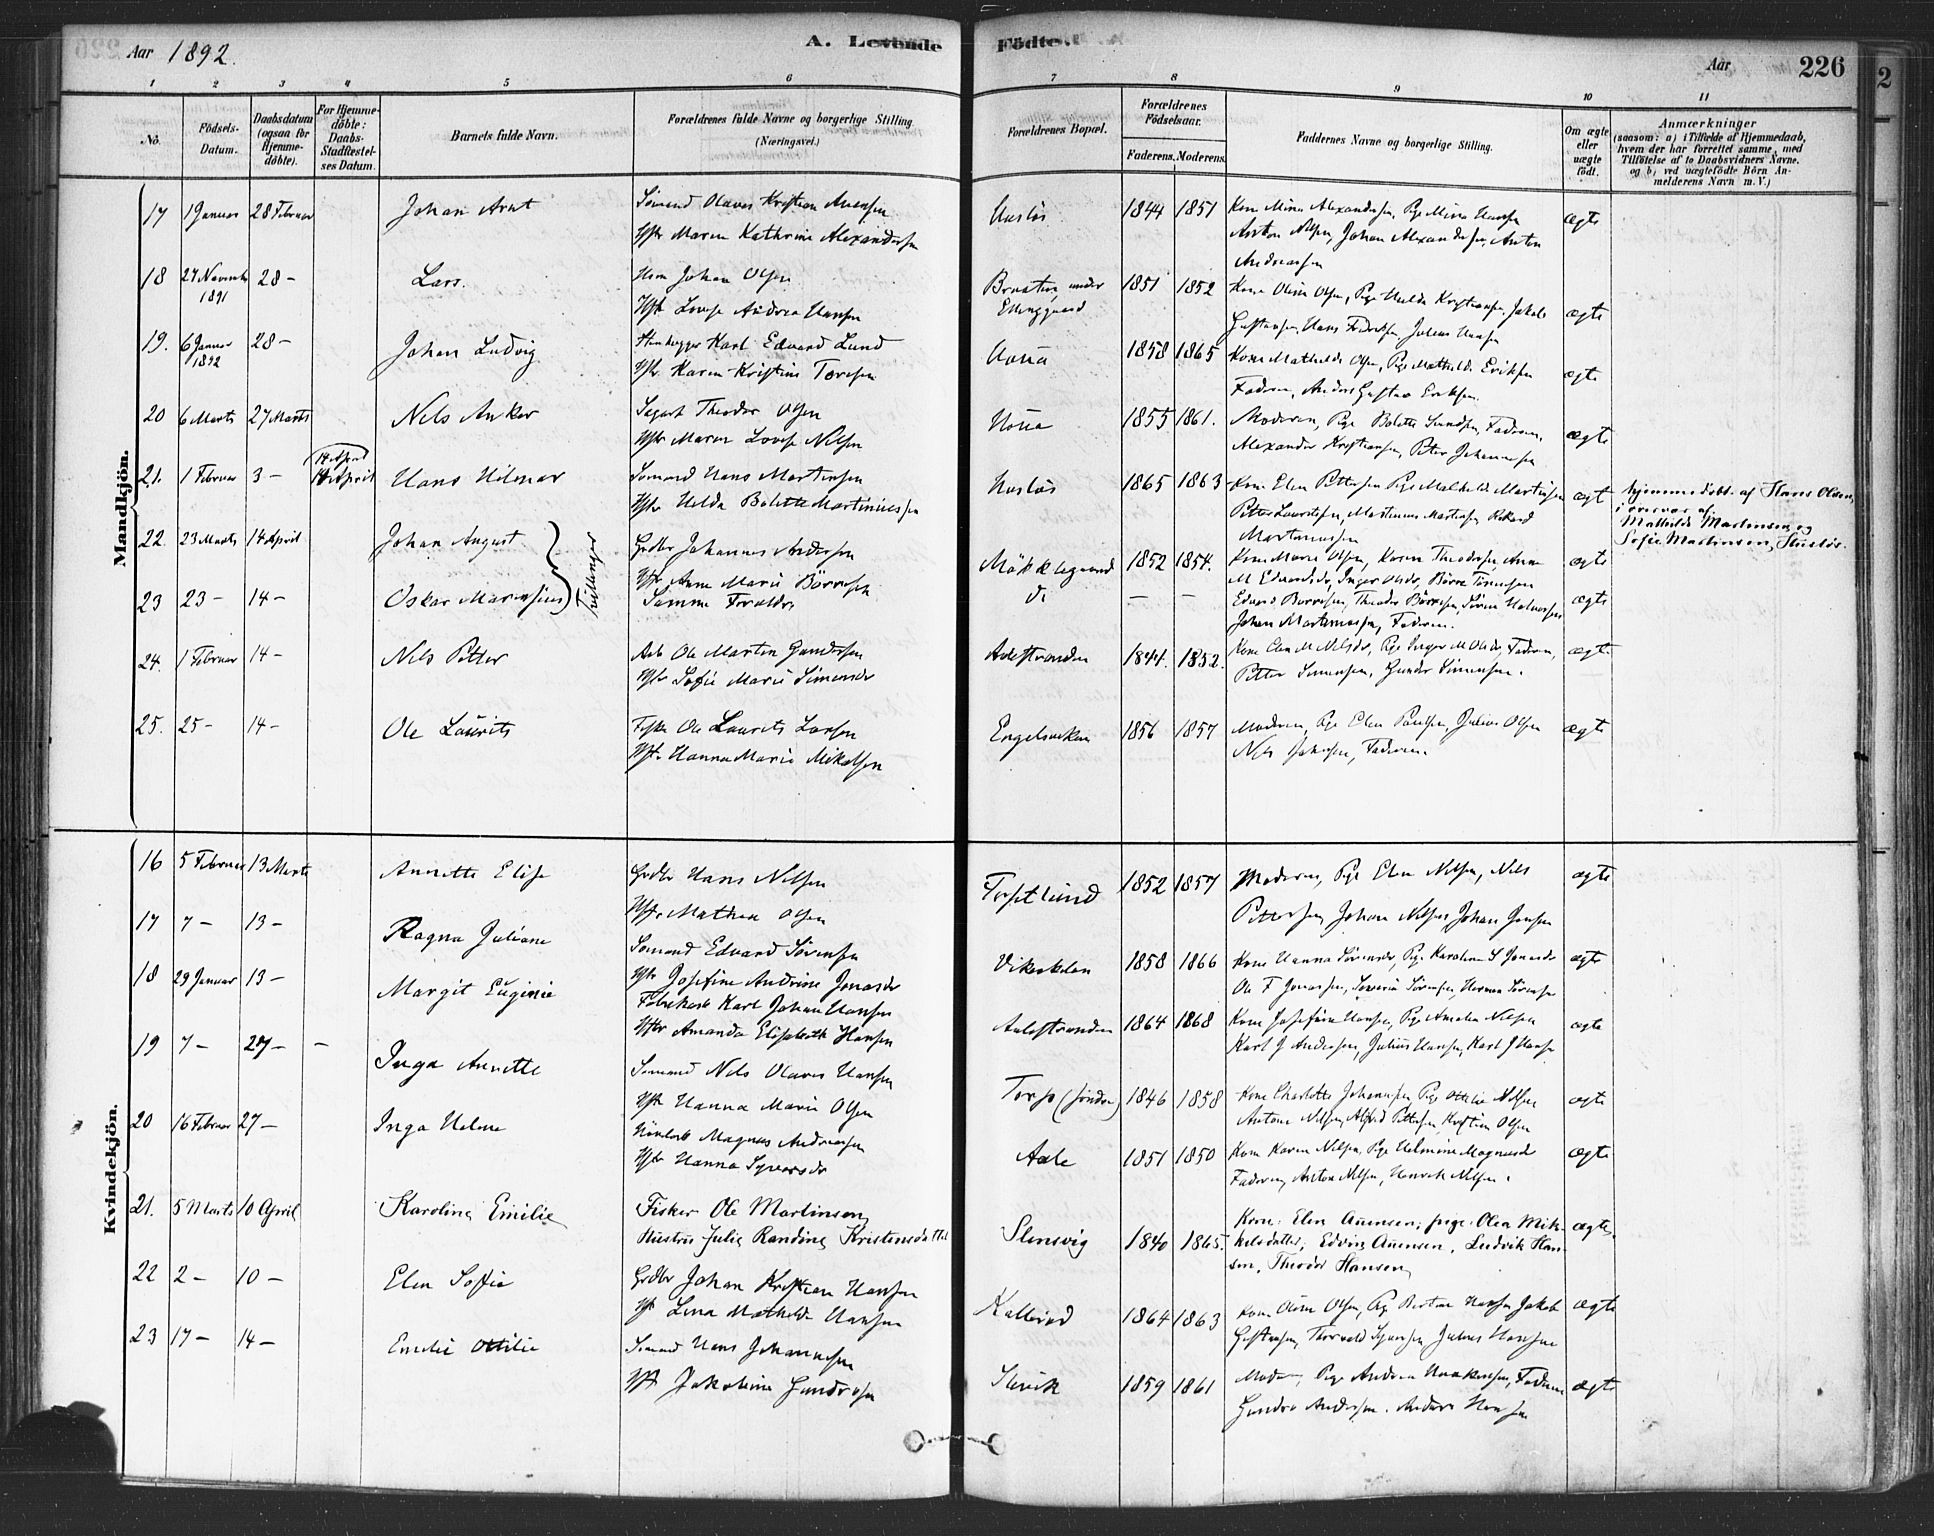 Aar 1892.
A. Levende Fødte.
Aar
226
1 2 3 4 5 6 7 8 9 10 11
No.
Födsels-Datum.
Daabsdatum (ogsaa for Hjemme-döbte).
For Hjemme-döbte: Daabs-Stadfæstel-ses Datum.
Barnets fulde Navn.
Forældrenes fulde Navne og borgerlige Stilling (Næringsvei.)
Forældrenes Bopæl.
Forældrenes Födselsaar.
Faderens. Moderens.
Faddernes Navne og borgerlige Stilling.
Om ægte eller uægte födt.
Anmærkninger
(saasom: a) i Tilfælde af Hjemmedaab,
hvem der har forrettet samme, med
Tilföielse af to Daabsvidners Navne.
og b) ved uægtefödte Börn An-
melderens Navn m. V.)
Mandkjön.
17 1 Januar 28 Februar Johan Arnt Sömand Olaves Kristian Auensen 1844 1851 Kone Mina Alexandersen, Pige Mina Hansen ægte
Hstr Maren Kathrine Alexandersen Anton Nilsen, Johan Alexandersen, Anton
Andreassen
18 27 Novemb 1891 28 – Lars. Johan Olsen Braaten under Elinggaard 1851 1852 Kone Oline Olsen, Pige Hulda Kristiansen, Jakob ægte
Hstr Lovise Andrea Hansen Gustavsen, Hans Fredriksen, Julius Hansen
19. 6 Januar 1892 28 – Johan Ludvig Stenhugger Karl Edvard Lund 1858 1865 Kone Mathilde Olsen, Pige Mathilde Eriksen ægte
Hstr. Karen Kristine Toresen Faderen, Anders Gustav Eriksen.
20 6 Marts 27 Marts Nils Anker Theodor Olsen 1855 1861. Moderen, Pige Bolette Sundsen, Faderen, ægte
Hstr Maren Lovise Nilsen Alexander Kristiansen, Peter Johannesen
21. 1 Februar 3 – 14 April Hans Hilmar Sömand Hans Martinsen Huslös 1865 1863 Kone Elen Pettersen Pige Mathilde Martinsen ægte hjemmedöbt af Hans Olsen,
Hstr Helda Bolette Martiniussen Petter Lauritsen, Martinius Martinsen, Rikard i nærvær af
Martinussen Mathilde Martinsen og
Sofie Martinsen, Huslös.
22. 23 Marts 14 April Johan August Grdbr Johannes Andersen Mökklegaard 1852 1854. Kone Marie Olsen, Karen Theodorsen, Anne ægte
Hstr Anne Marie Börresen M Edvardsdr, Inger Olsdr, Börre Törresen
Tvillinger
23 23 – 14 – Oskar Marensius Samme Forældre do – – Edvard Borresen, Theodor Börresen, Sören Halvorsen ægte
Johan Martinussen, Faderen.
24. 1 Februar 14 – Nils Petter Arb Ole Martin Gundersen Aalestranden 1844. 1852. Kone Elen M Nilsdr, Pige Inger M Olsdr, Faderen, ægte
Hstr Sofie Marie Simensdr Petter Simensen, Gunder Simensen.
25. 25 – 14 – Ole Laurits Fisker Ole Laurits Larsen Engelsviken 1856 1857 Moderen, Pige Elen Paulsen, Julius Olsen ægte
Hstr. Hanna Marie Mikalsen Nils Jakobsen, Faderen.
Kvindekjön.
16 5 Februar 13 Marts Annette Elise Grdbr Hans Nilsen 1852 1857 Moderen, Pige Elen Nilsen, Nils ægte
Hstr Mathea Olsen Pettersen, Johan Nilsen, Johan Jensen
17 7 – 13 – Ragna Juliane Sömand Edvard Sörensen Vikerkilen 1858 1866 Kone Hanna Sörensdr, Pige Karoline S Jonasdr ægte
Hstr Josefine Andrine Jonasdr Ole F Jonassen, Severin Sörensen, Herman Sörensen
18 29 Januar 13 – Margit Euginie Fabrikarb Karl Johan Hansen Aalestranden 1864 1868 Kone Josefine Hansen, Pige Amalie Nilsen ægte
Hstr Amanda Elisabeth Hansen Karl J Andersen, Julius Hansen, Karl J Hansen
19 7 – 27 – – Inga Annette Sömand Nils Olaves Hansen Torp (söndre) 1846 1858 Kone Charlotte Johansen, Pige Ottilie Nilsen ægte
Hstr Hanna Marie Olsen Antone Nilsen, Alfred Pettersen, Kristian Olsen
20 16 Februar 27 – Inga Helene Magnus Andreassen Aale 1851 1850 Kone Karen Nilsen, Pige Helmine Magnusdr ægte
Hstr Hanna Syversdr Faderen, Anton Nilsen, Henrik Nilsen.
21. 5 Marts 10 April Karoline Emilie Fisker Ole Martinsen Slensvig 1840 1865. Kone: Elen Auensen; pige: Olea Mik- ægte.
Hustru Julie Randine Kristensdatter kelsdatter; Edvin Auensen, Ludvik Han-
sen, Theodor Hansen
22 2 – 10 – Elen Sofie Grdbr Johan Kristian Hansen Kallerød 1864 1863 Kone Oline Olsen, Pige Hansen Jakob ægte
Hst Lena Mathilde Hansen Gustavsen, Thorvald Syversen, Julius Hansen
23 17 – 14 – Emilie Ottilie Sömand Hans Johannesen 1859 1861 Moderen, Pige Andrea Haakensen, Faderen ægte
Hst Jakobine Gundersen Gunder Andersen. Anders Hansen